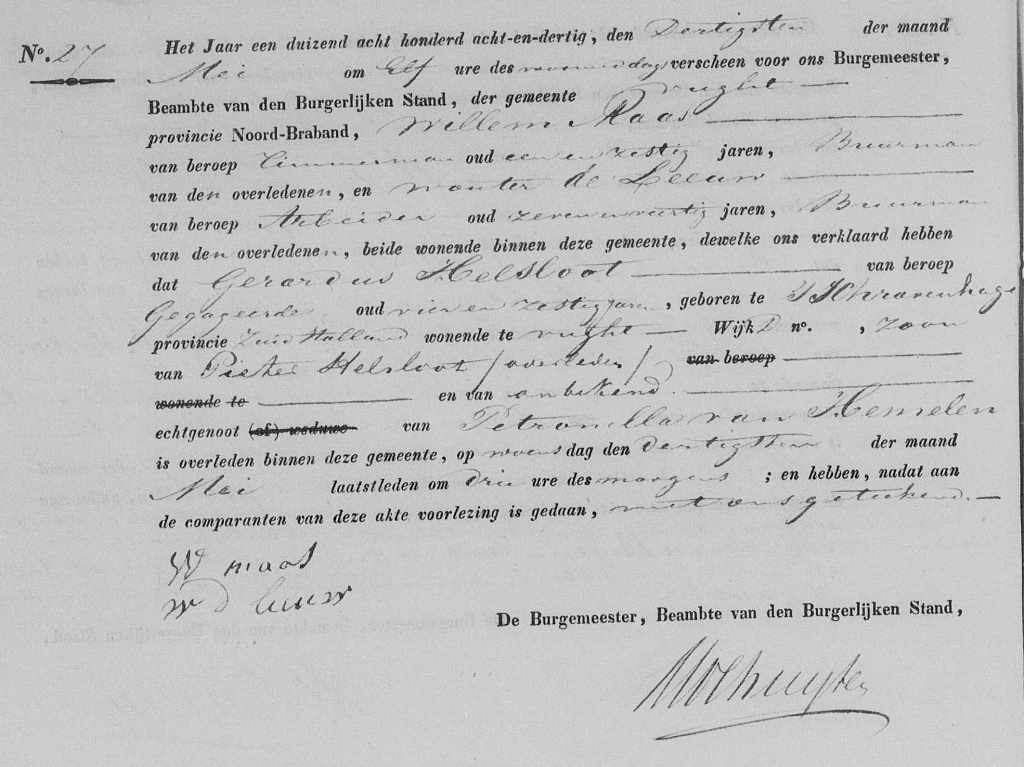 No. 27
Het Jaar een duizend acht honderd acht-en-dertig, den Dertigsten der maand
Mei om Elf ure des dags verscheen voor ons Burgemeester,
Beambte van den Burgerlijken Stand, der gemeente Vught
provincie Noord-Braband, Willem Maas
van beroep Timmerman oud een en zestig jaren, Buurman
van den overledenen, en Wouter de Leeuw
van beroep Arbeider oud zeven en veertig jaren, Buurman
van den overledenen, beide wonende binnen deze gemeente, dewelke ons verklaard hebben
dat Gerardus Helsloot van beroep
Gegageerde oud vier en zestig jaren, geboren te 'S Schravenhage
provincie Zuid Holland wonende te Vught Wijk D no. , zoon
van Pieter Helsloot /overleden/ van beroep
wonende te en van onbekend.
echtgenoot (of) weduwe van Petronella van Hemelen
is overleden binnen deze gemeente, op woensdag den dertigsten der maand
Mei laatstleden om drie ure des morgens ; en hebben, nadat aan
de comparanten van deze akte voorlezing is gedaan, met ons geteekend.
W maas
w d leeuw
De Burgemeester, Beambte van den Burgerlijken Stand,